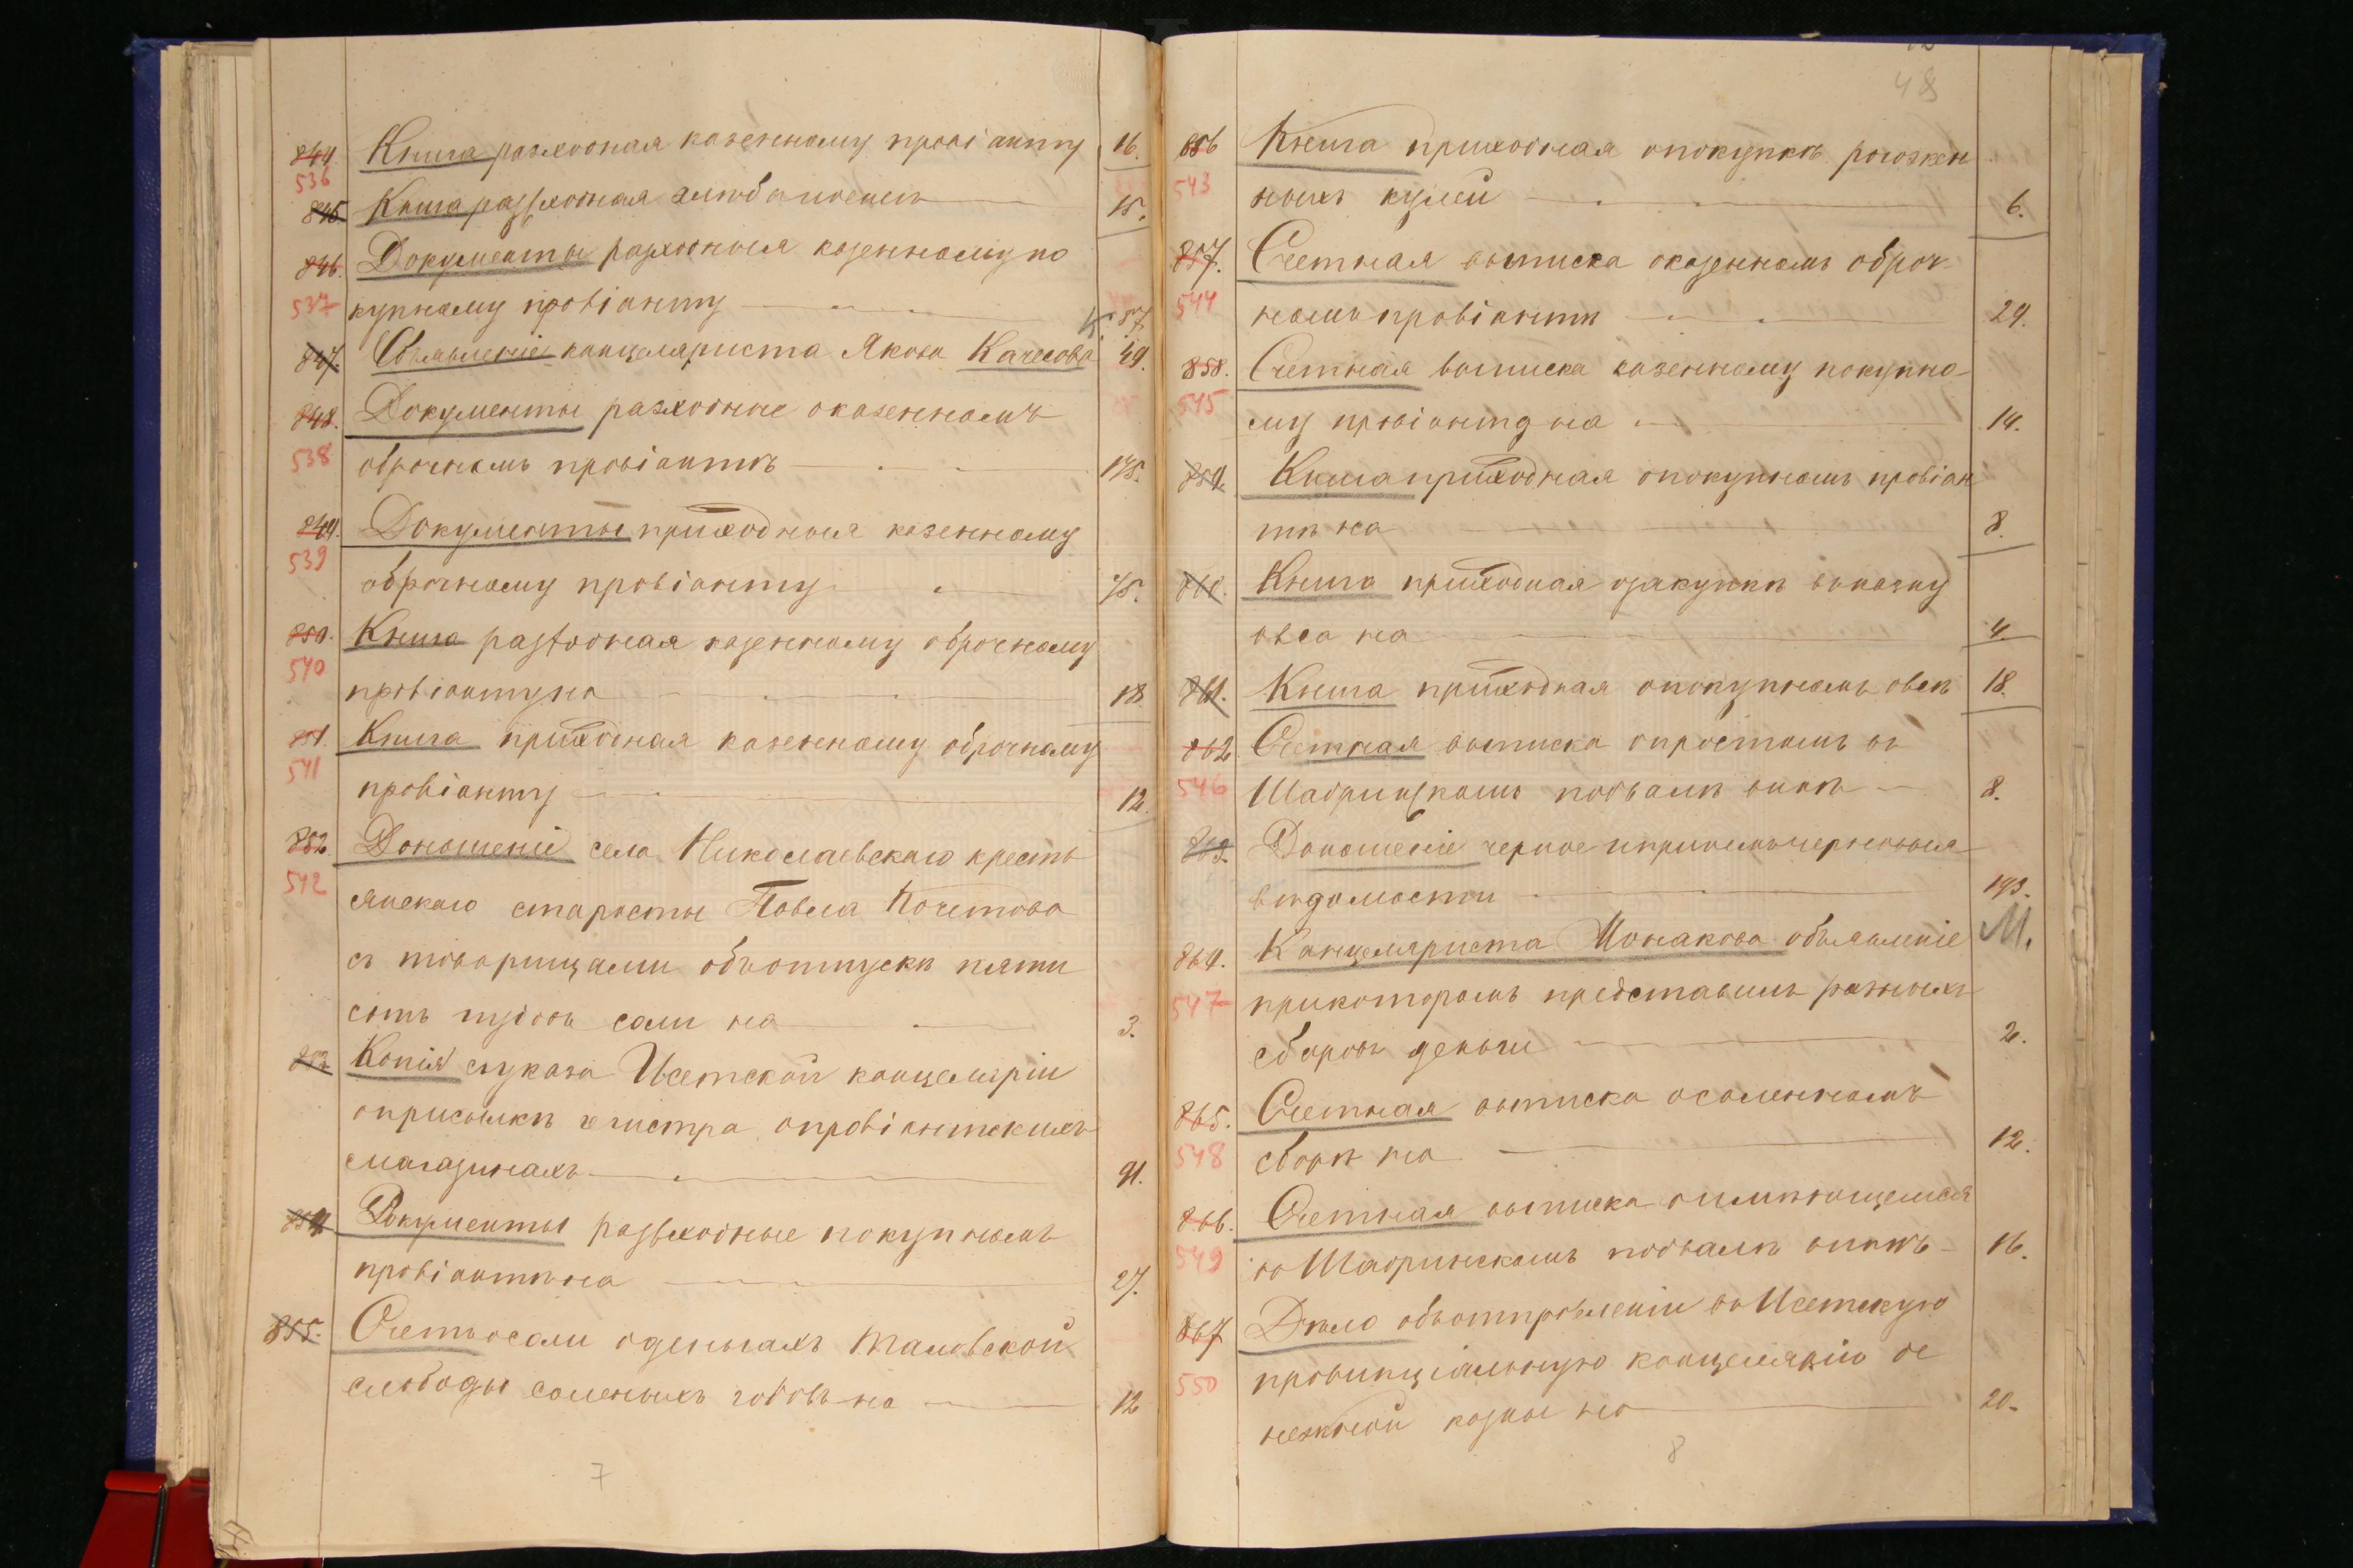 844. Книга расходная казенному провіанту 16.
536
845. Книга разходная 15.
846. Документы разходныя казенному по
537 купному провіанту 87.
847. Объявленіе канцеляриста Якова Качесова 49.
848. Документы разходные оказенномъ
538 оброчномъ провіантѣ 175.
849. Документы приходныя казенному
539
оброчному провіанту 75.
850. Книга разходная казенному оброчному
540
провіанту на 18
851. Книга приходная казенному оброчному
541
провіанту 12
852. Доношеніе села Николаевскаго кресть
542
янскаго старосты Павла Кочетова
съ товарищами объотпускѣ пяти
сотъ пудовъ соли на 3.
853 Копія съуказа Исетской канцеляріи
оприсылкѣ регистра опровіантскихъ
магазинахъ 91.
854 Документы разъходные покупномъ
провіантѣ на 27.
855. Счетъ осоли оденьгахъ Таловской
слободы соленыхъ годовъ на 12
7
48
856 Книга приходная опокупкѣ рогожен
543 ныхъ кулей 6.
857. Счетная выписка оказенномъ оброч
544 номъ провіантѣ 29.
858. Счетная выписка казенному покупно
545
му провіанту на 14.
859. Книга приходная опокупномъ провіан
тѣ на 8.
860. Книга приходная озакупкѣ вказну
овса на 4.
861. Книга приходная опокупномъ овсѣ 18.
862 Счетная выписка опростомъ въ
546 Шадринскомъ подвалѣ винѣ 8.
863. Доношеніе черное ипринемъчерненныя
вѣдомости 193.
864. Канцеляриста Монакова объявленіе М.
547 прикоторомъ представилъ разныхъ
сборовъ деньги 2.
865. Счетная выписка осоленномъ
548 сборѣ на 12.
866. Счетная выписка оимѣющемся
549 во Шадринскомъ подвалѣ винѣ 16.
867 Дѣло объотправленіи во Исетскую
550 провинціальную канцелярію де
нежной казны на 20.
8